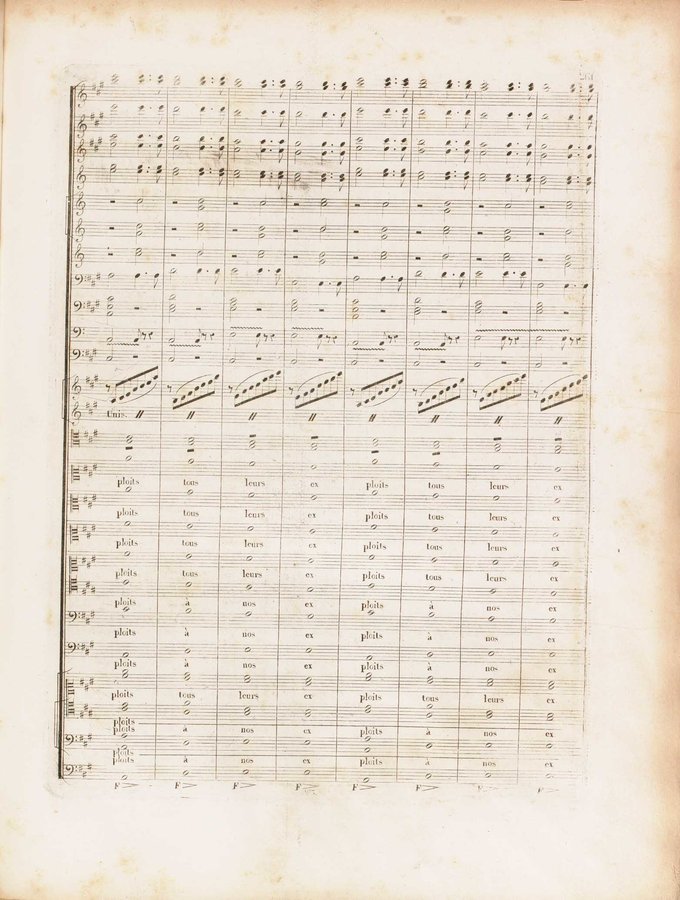 Unis.
ploits tous leurs ex ploits tous leurs ex
ploits tous leurs ex ploits tous leurs ex
ploits tous leurs ex ploits tous leurs ex
ploits tous leurs ex ploits tous leurs ex
ploits à nos ex ploits à nos ex
ploits à nos ex ploits à nos ex
ploits à nos ex ploits à nos ex
ploits tous leurs ex ploits tous leurs ex
ploits
ploits à nos ex ploits à nos ex
ploits
ploits à nos ex ploits à nos ex
F F F F F F F F